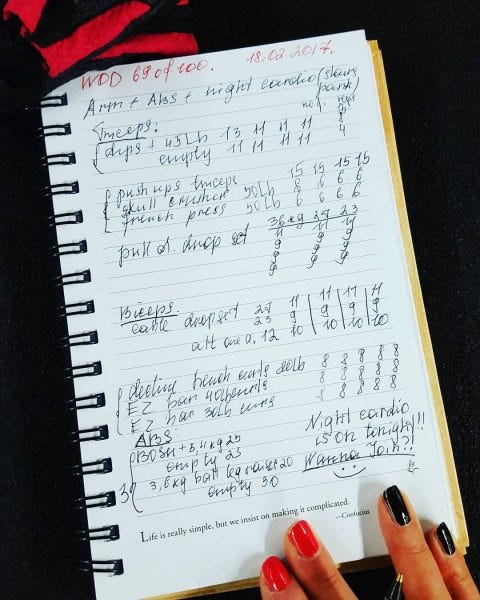 WOD 69 of 100. 18.02 2017.
Arm + Abs + night cardio (stairs
park)
Triceps:
dips + 45Lb 13 11 11 11
empty 11 11 11 11 4
push ups triceps 15 15 15 15
skull crusher 50Lb 8 6 6 6
french press 50Lb 6 6 6 6
pull d. drop set 36kg 27 23
11 11 11
9 9 9
9 9 9
9 9 9
Biceps:
cable dropset 27 11 11 11 11
23 9 9 9 9
10 10 10 10
decline bench curls 20lb 8 8 8 8
EZ bar 40lb curls 8 8 8
EZ bar 30lb curls 8 8 8 8
ABS
BOSU + 5,4kg 25
empty 25
3 3,6kg ball leg raises 20
empty 30
Night cardio
is on tonight!!
Wanna Join?!
Life is really simple, but we insist on making it complicated.
—Confucius